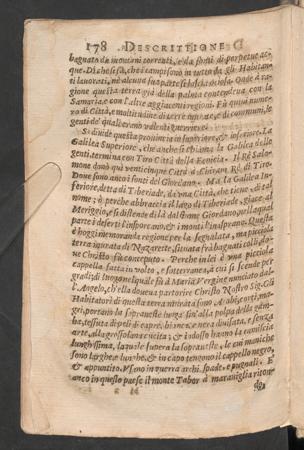 178 DESCRITTIONE
bagnata da montani torrenti, e da fonti di perpetue ac-
que. Di che si sà, che i campi sono in tutto da gli Habitan-
ti lauorati, nè alcuna sua parte se ne sta ociosa. Onde à ra-
gione questa terra già della palma contendeua con la
Samaria, e con l'altre aggiacenti regioni. Fù quiui nume-
ro di Città, e moltitudine di terre murate, e di communi, le
genti de' quali erano valenti guerrieri.
Si diuide questa prouintia in superiore, & inferiore. La
Galilea Superiore, che anche si chiama la Galilea delle
genti, termina con Tiro Città della Fenicia. Il Rè Salo-
mone donò quì venticinque Città à Chiram Rè di Tiro.
Doue sono anco i fonti del Giordano. Ma la Galilea In-
feriore, detta di Tiberiade, da una Città, che tiene di tal
nome; ò perche abbraccia il lago di Tiberiade, giace al
Meriggio, e si distende di là dal fiume Giordano, per li quai
parte i deserti l'insporano, & i monti l'inasprano. Questa
è hoggi memoranda regione per la segnalata, ma picciola
terra murata di Nazarette, situata frà bagnati colli, do-
ue Christo fù conceputo. Perche inlei è una picciola
cappella fatta in volto, e sotterranea, à cui si scende per
gradi; di luogo nel quale fù à Maria Vergine nunciato dal-
l'Angelo, ch'ella doueua partorire Christo Nostro Sig. Gli
Habitatori di questa terra murata sono Arabi, corti, ma-
gri, portano la sopraueste lunga sin' alla polpa della gam-
ba, tessuta di peli di capre, bianca, e nera diuisata, e senza
arte, alla grossolana cucita; & indosso hanno la camiscia
lunghissima, la quale supera la soprauesta: le cui maniche
sono larghe e lunghe, & in capo tengono il cappello negro,
& appuntito. Vsano in guerra archi, spade, e pugnali. E
anco in questo paese il monte Tabor à marauiglia riton-
do,